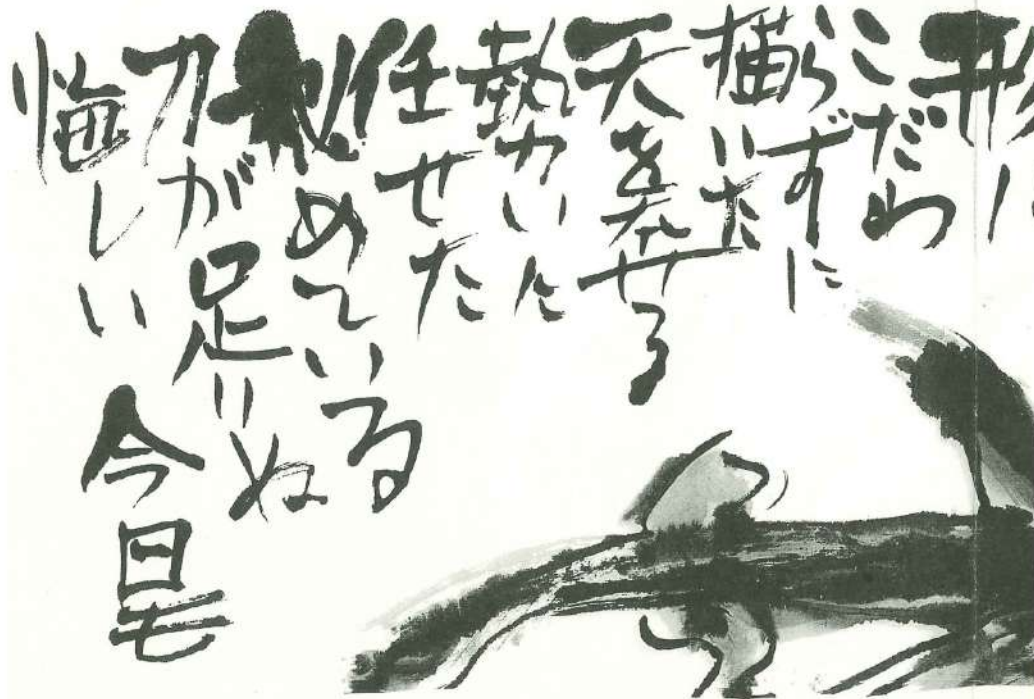 形に
こだわ
らずに
描いた
天をせる
勢いに
任せた
秘めている
力が足りぬ
悔しい 今日も